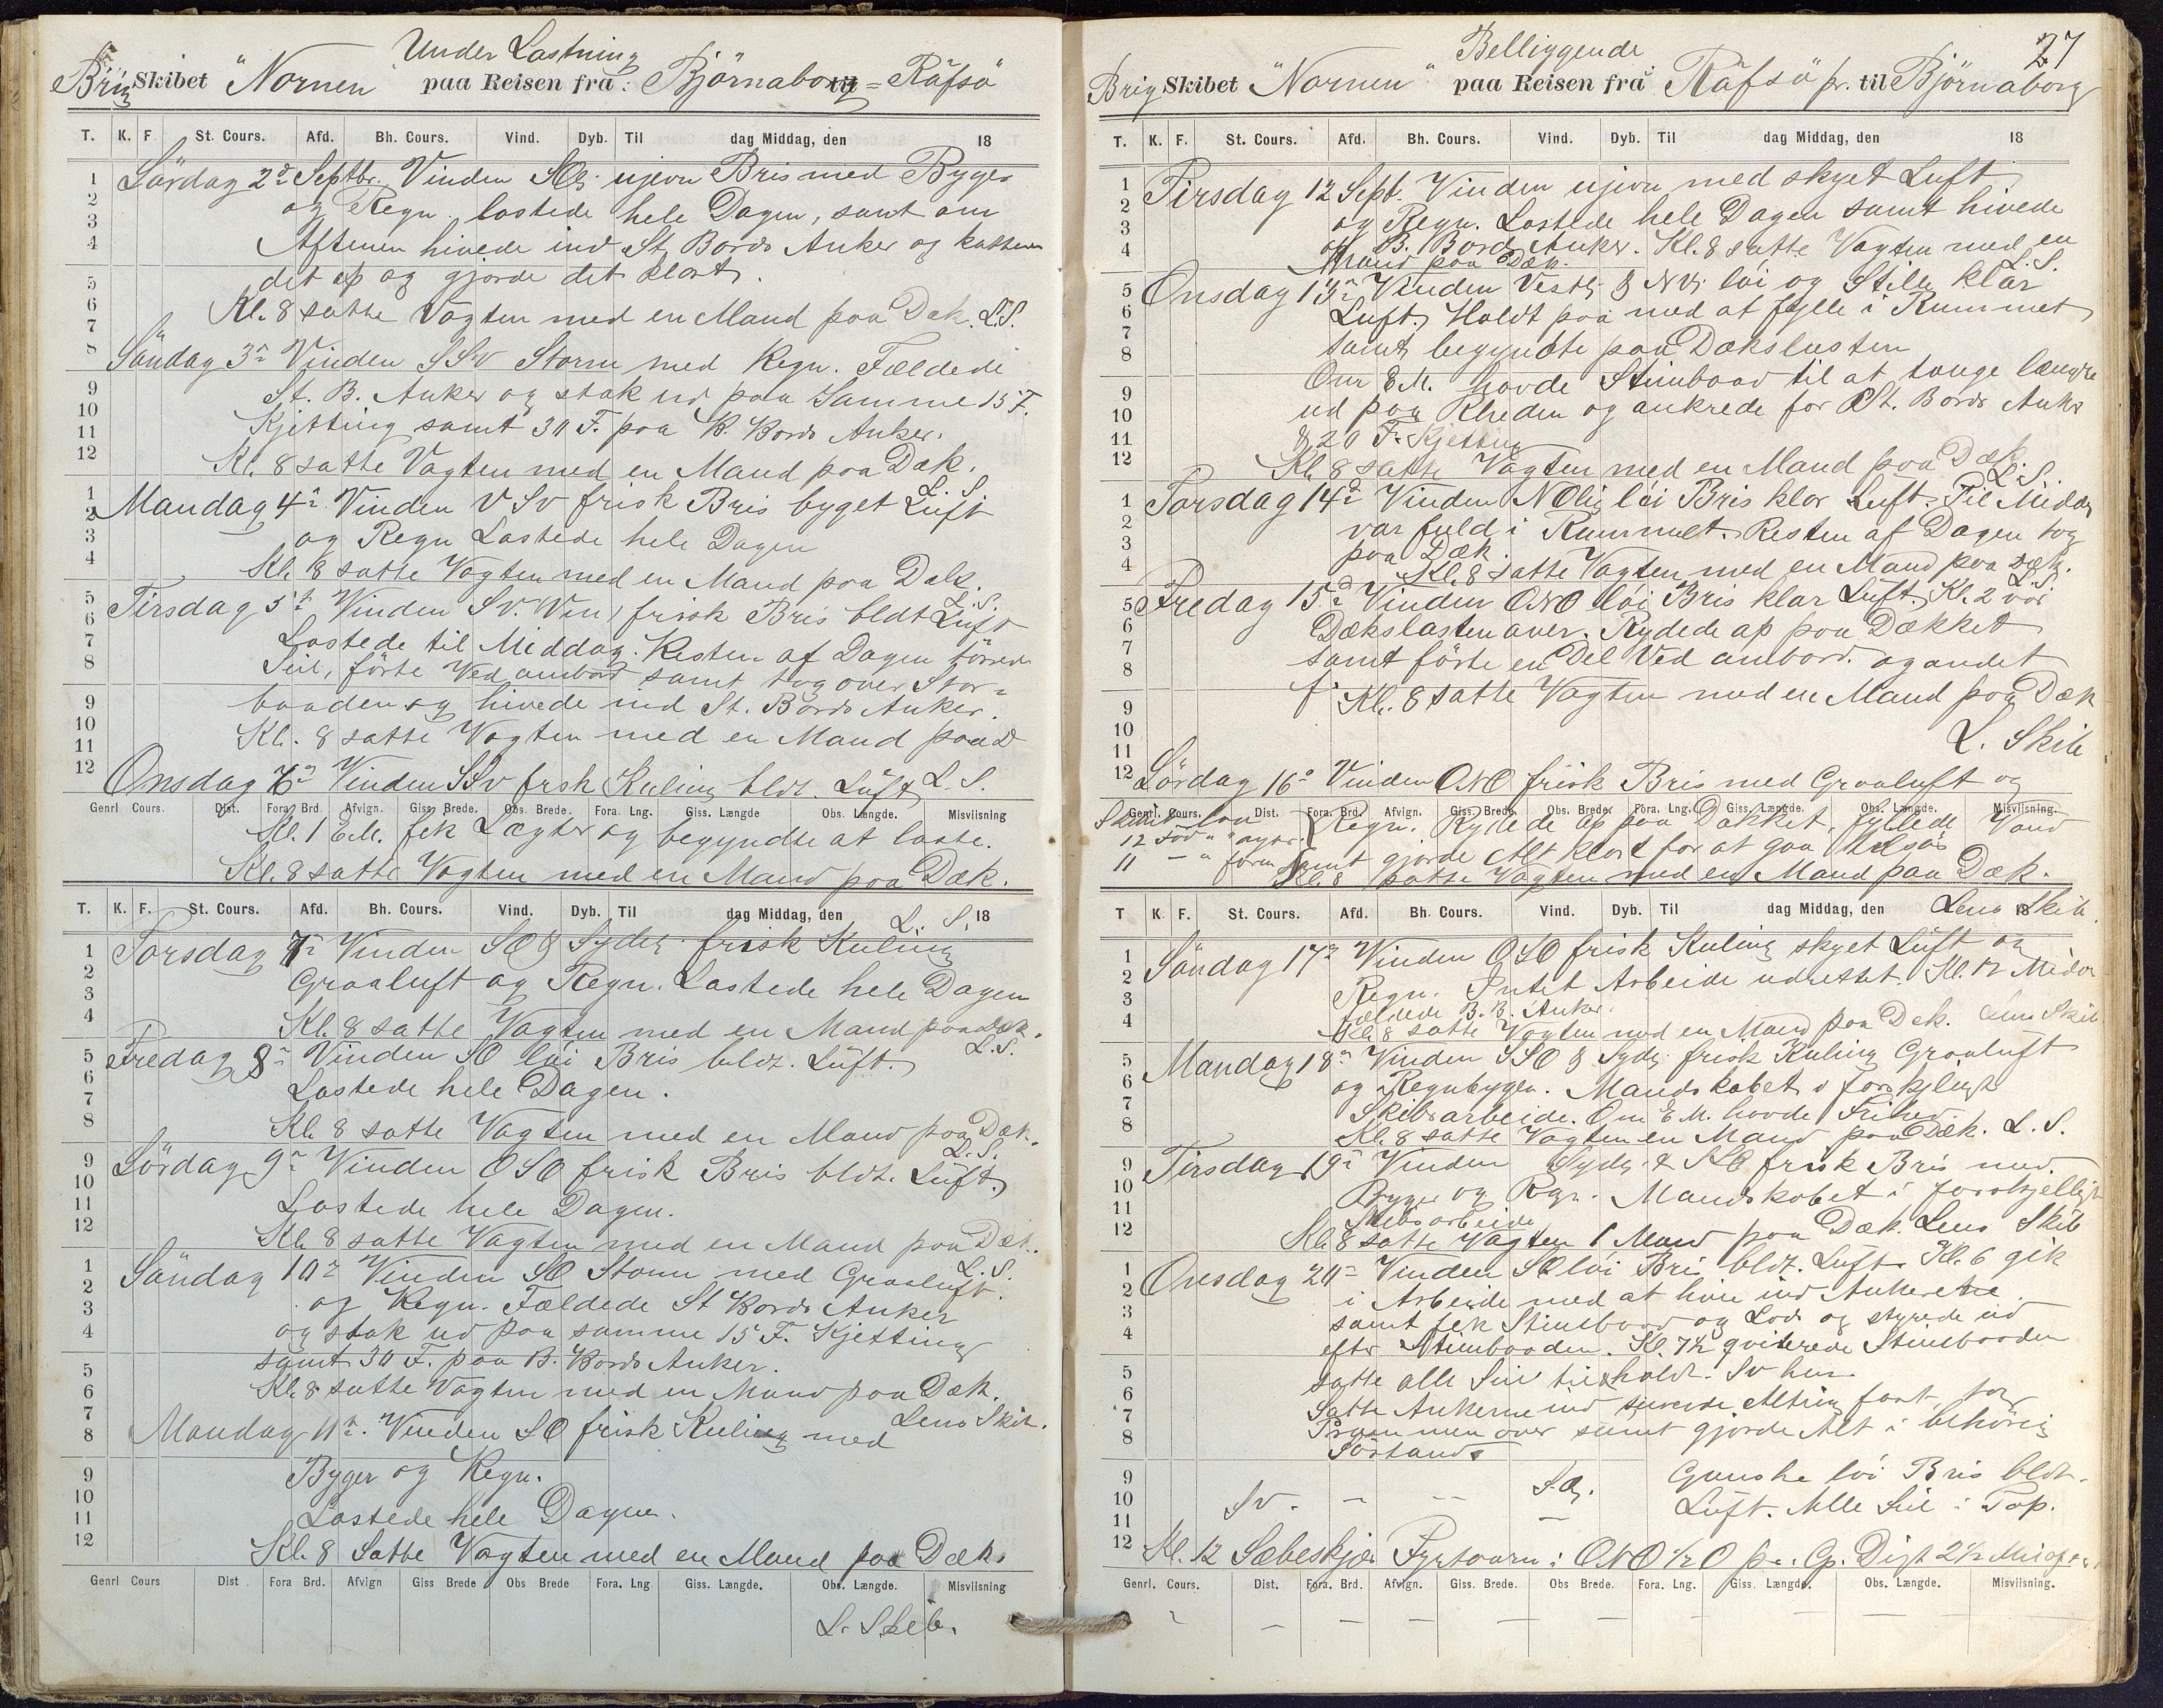 Under Lastning
Brig Skibet "Nornen" paa Reisen fra: Björnaborg til = Räfsö
T. K. F. St. Cours. Afd. Bh. Cours. Vind. Dyb. Til dag Middag, den 18
Lördag 2d Septbr. Vinden SOlig ujevn Bris med Byger
og Regn. lastede hele Dagen, samt om
Aftenen hivede ind St. Bords Anker og
det op og gjorde det klart.
Kl. 8 satte Vagten med en Mand paa Dæk. L.S.
Söndag 3de Vinden SSv Storm med Regn. Fældede
St. B. Anker og stak ud paa Samme 15 F.
Kjetting samt 30 F. paa B. Bords Anker.
Kl. 8 satte Vagten med en Mand paa Dæk.
L. S.
Mandag 4de Vinden VSv frisk Bris byget Luft
og Regn Lastede hele Dagen
Kl. 8 satte Vagten med en Mand paa Dæk.
L.S.
Tirsdag 5te Vinden Sv. frisk Bris bldt Luft
Lastede til Middag. Resten af Dagen törrede
Seil, förte Ved ombord samt tog over Stor=
baaden og hivede ind St. Bords Anker.
Kl. 8 satte Vagten med en Mand paa D
Onsdag 6te Vinden SSv frsk Kuling bldt. Luft L. S.
Genrl Cours. Dist. Fora Brd. Afvign. Giss. Brede. Obs. Brede. Fora. Lng. Giss. Længde Obs. Længde. Misviisning
Kl. 1 E.M. fik Lægter og begyndte at laste.
Kl. 8 satte Vagten med en Mand paa Dæk.
T. K. F. St. Cours. Afd. Bh. Cours. Vind. Dyb. Til dag Middag, den 18
L. S.
Torsdag 7de Vinden SO & Sydlig frisk Kuling
Graaluft og Regn. Lastede hele Dagen
Kl. 8 satte Vagten med en Mand paa Dæk.
L.S.
Fredag 8de Vinden SO löi Bris bldt. Luft.
Lastede hele Dagen.
Kl. 8 satte Vagten med en Mand paa Dæk.
L.S.
Lördag 9de Vinden OSO frisk Bris bldt. Luft.
Lastede hele Dagen.
Kl. 8 satte Vagten med en Mand paa Dæk.
L.S.
Söndag 10de Vinden SO Storm med Graaluft.
og Regn. Fældede St Bords Anker
og stak ud paa samme 15 F. Kjetting
samt 30 F. paa B. Bords Anker.
Kl. 8 satte Vagten med en Mand paa Dæk.
Lens Skib.
Mandag 11te. Vinden SO frisk Kuling med
Byger og Regn.
Lastede hele Dagen.
Kl. 8 Satte Vagten med en Mand paa Dæk.
Genrl Cours Dist Fora Brd. Afvign Giss Brede Obs Brede Fora. Lng Giss. Længde. Obs. Længde. Misviisning
L. Skib.
27
Belliggende
Brig Skibet "Nornen" paa Reisen fra Räfsö pr. til Björnaborg
T. K. F. St. Cours. Afd. Bh. Cours. Vind. Dyb. Til dag Middag, den 18
Tirsdag 12 Sept. Vinden ujevn med skyet Luft
og Regn. Lastede hele Dagen samt hivede
op B. Bords Anker. Kl. 8 satte Vagten med en
Mand paa Dæk. L.S.
Onsdag 13de Vinden Vestlig & NVlig löi og Stille klar
Luft. Holdt paa med at fylle i Rummet
samt begyndte paa Dækslasten
Om E.M. havde Stimbaad til at længre
ud paa Rheden og ankrede for St. Bords Anker
& 20 F. Kjetting
Kl. 8 satte Vagten med en Mand paa Dæk
L.S.
Torsdag 14de Vinden NOlig löi Bris klar Luft. Til Middag
var fuld i Rummet. Resten af Dagen tog
paa Dæk.
Kl. 8 satte Vagten med en Mand paa Dæk.
L.S.
Fredag 15de Vinden ONO löi Bris klar Luft. Kl. 2 var
Dækslasten over. Rydede op paa Dækket
samt förte en Del Ved ombord. og andet
Kl. 8 satte Vagten med en Mand paa Dæk
L. Skib
Lördag 16de Vinden ONO frisk Bris med Graaluft og
Genrl. Cours. Dist. Fora. Brd. Afvign. Giss. Brede. Obs. Brede. Fora. Lng. Giss. Længde. Obs. Længde. Misviisning.
Regn. Rydede op paa Dækket, fyllede Vand
12 Fod " " agter
samt gjorde Alt klart for at gaa tilsös
11 — " form
Kl. 8 satte Vagten med en Mand paa Dæk.
T K. F. St. Cours. Afd. Bh. Cours. Vind. Dyb. Til dag Middag, den 18
Lens Skib.
Söndag 17de Vinden OSO frisk Kuling skyet Luft og
Regn. Intet Arbeide udrettet. Kl. 12 Midd
Fældede B. B. Anker.
Kl. 8 satte Vagten med en Mand paa Dæk. Lens Skib
Mandag 18de Vinden SSO & Sydlig frisk Kuling Graaluft
og Regnbyger. Mandskabet i forskjligt
Skibsarbeide. Om E.M. havde Frihed.
Kl. 8 satte Vagten en Mand paa Dæk. L. S.
Tirsdag 19de Vinden Sydlig & SSO frisk Bris med
Byger og Regn. Mandskabet i forskjelligt
Skibsarbeide
Kl. 8 satte Vagten 1 Mand paa Dæk. Lens Skib
Onsdag 20de Vinden SO löi Bris bldt. Luft. Kl. 6 gik
i Arbeide med at hive ind Ankerene.
samt fik Stimbaad og Lods og styrede ud
efter Stimbaaden. Kl. 7½ qviterede Stimbaaden
satte alle Seil tilholdt. Sv hen
Satte Ankerne ind Alting fast, tog
Prammen over samt gjorde Alt i behörig
Sörstand
Sv. — — SO. Ganske löi Bris bldt.
Luft. Alle Seil i Top.
Kl. 12 Sæbeskjær Fyrtaarn i ONO ½ O pr. Cp. Dist 2½ Mil
Genrl. Cours. Dist. Fora. Brd. Afvign. Giss. Brede. Obs Brede. Fora. Lng. Giss. Længde. Obs. Længde. Misviisning.